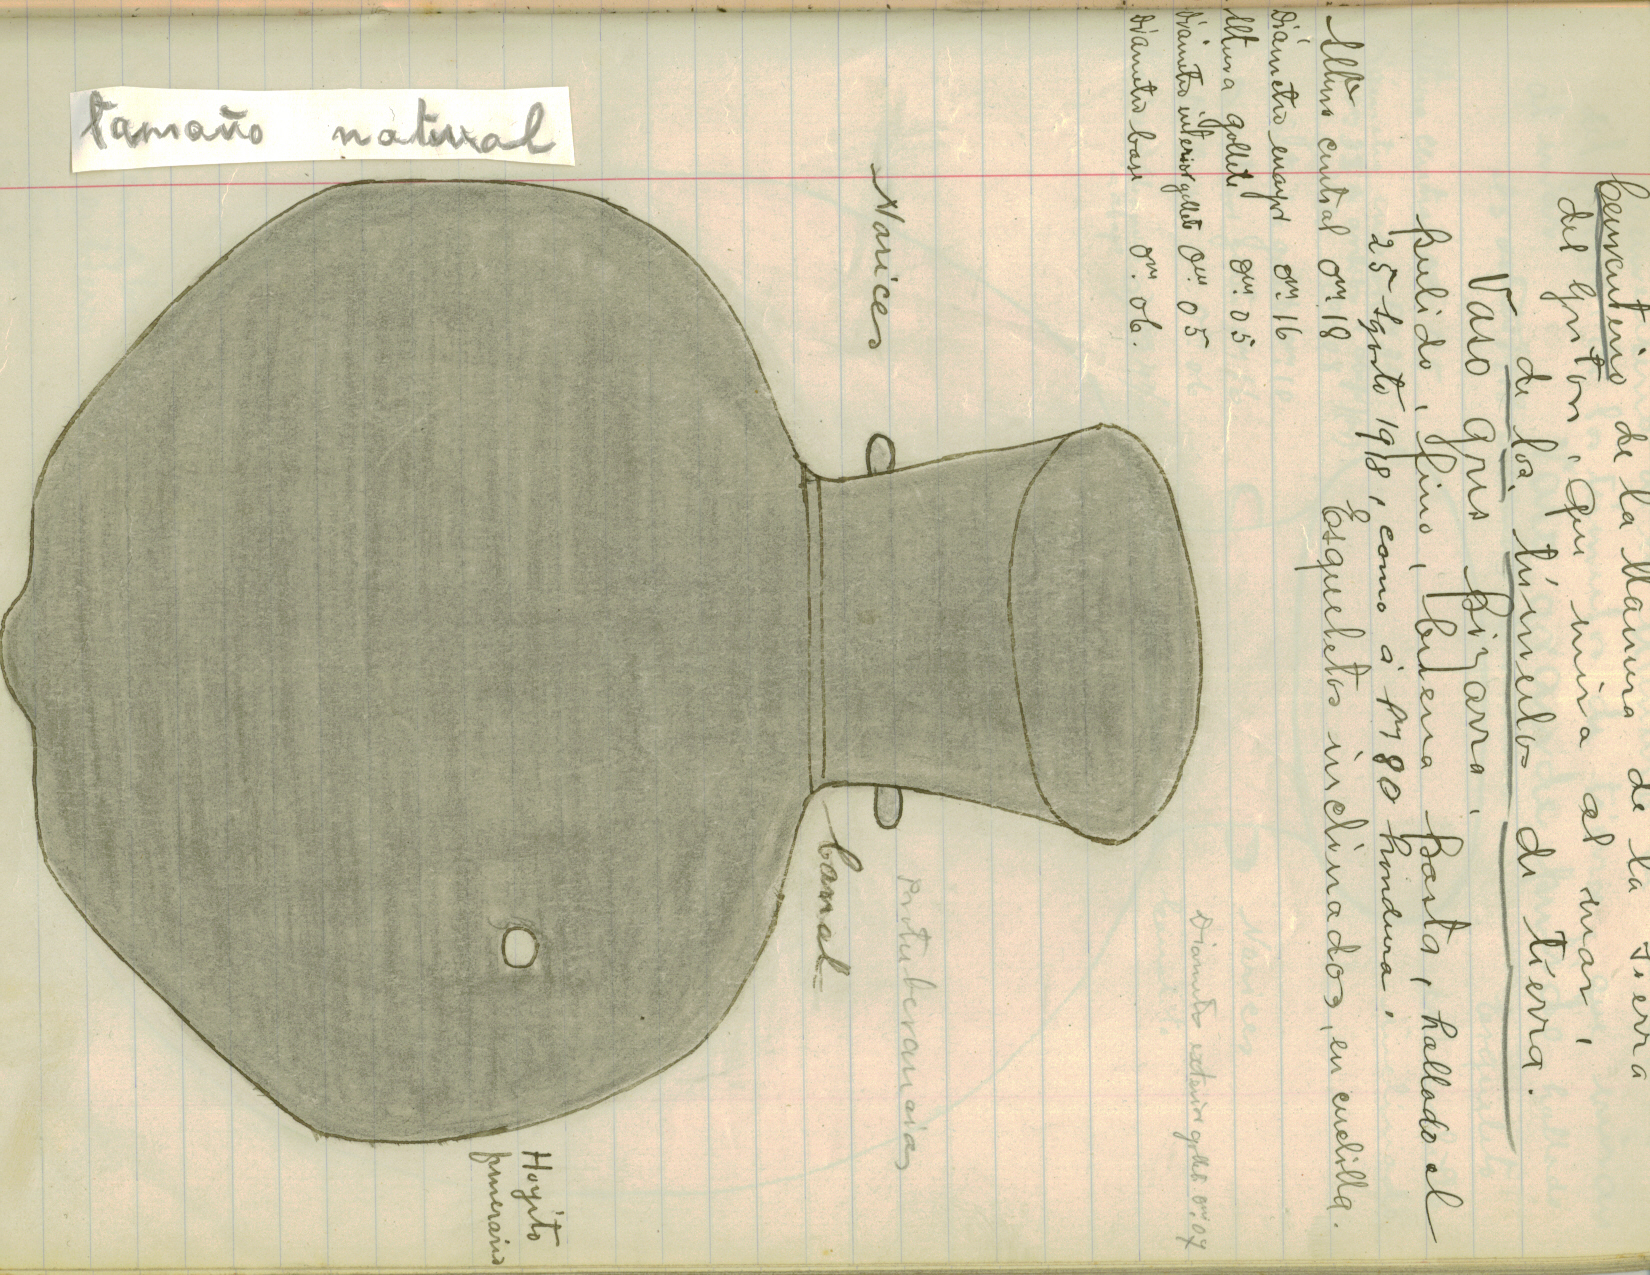 Cementerio de la llanura de la sierra
del Gritón, que mira al mar,
de los túmulos de tierra.
Vaso gris pizarra,
pulido, fino, buena pasta, hallado el
25 Agosto 1918, como á 1m 80 hondura.
Esqueletos inclinados, en cuclilla.
Altura central 0m.18
Diámetro mayor 0m.16
Altura gollete 0m.05
Diámetro interior gollete 0m.05
Diámetro base 0m.06.
Diametro exterior gollete 0m.07
Narices
Protuberancias
Canal
Hoyito
funerario
tamaño natural